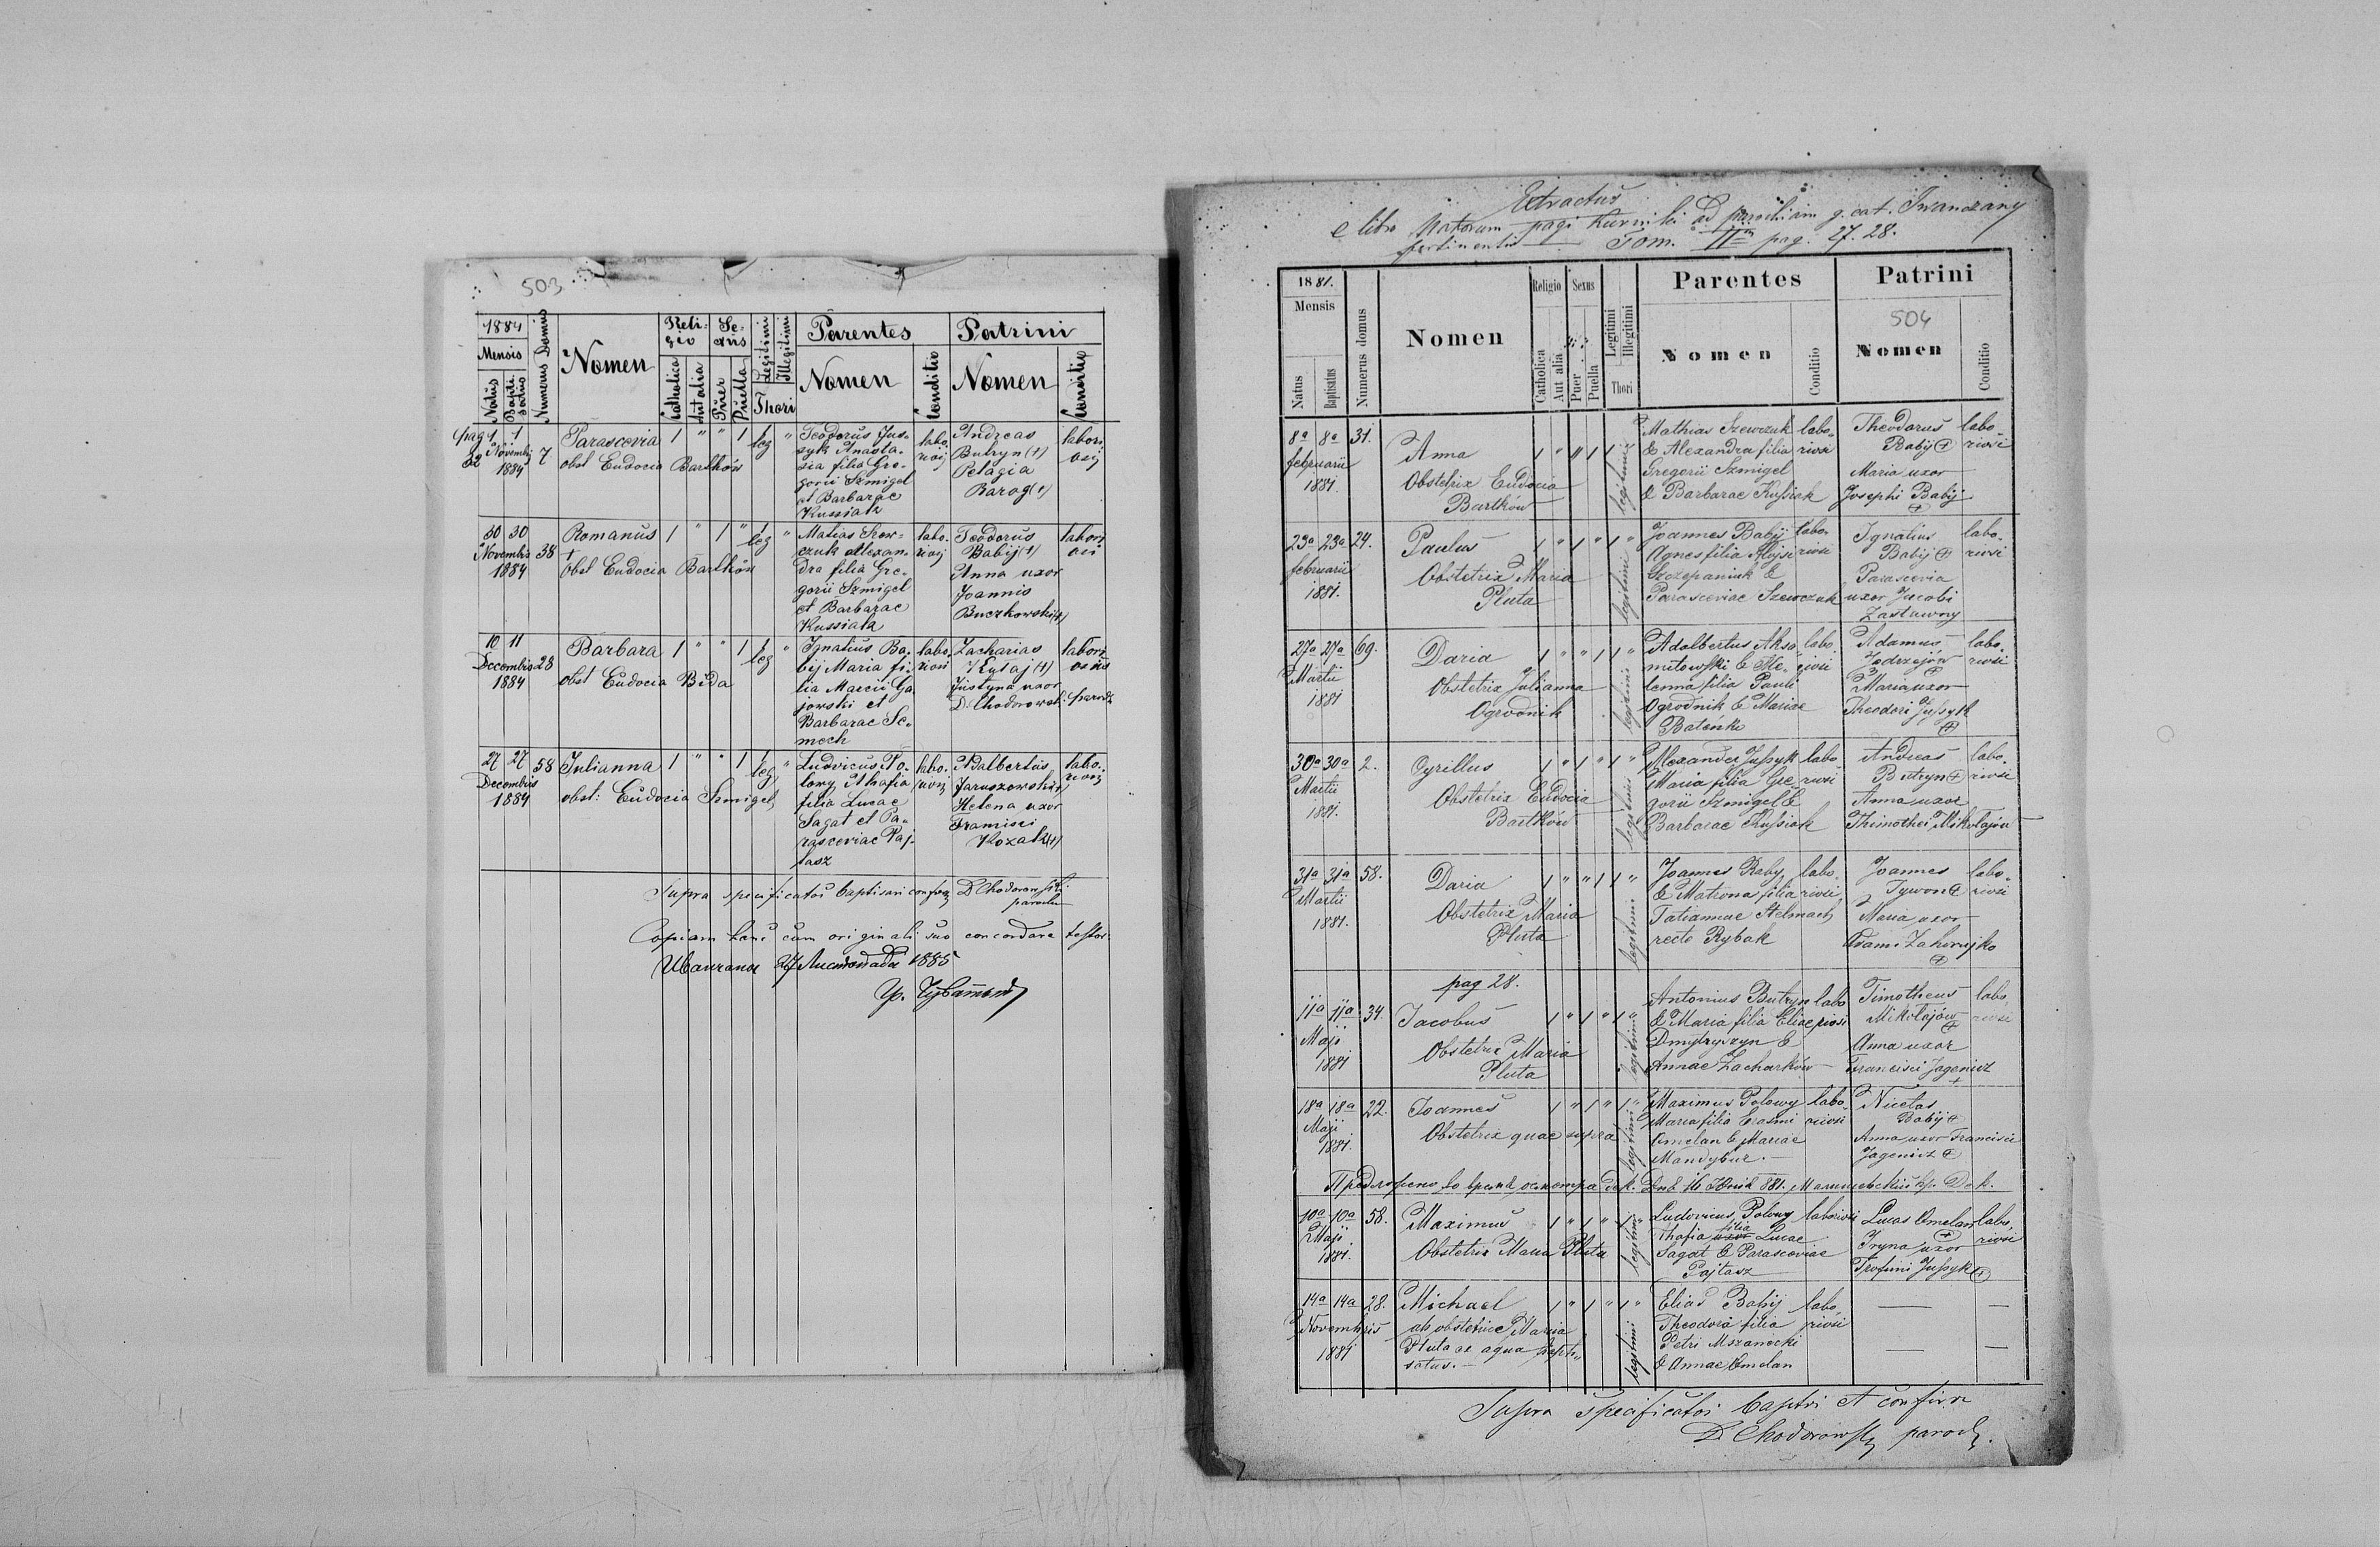 503
1884
Mensis
Natus
Bapti-
satus
Numerus Domus
Nomen
Reli-
gio
Catholica
Aut alia
Se-
xus
Puer
Puella
Legitimi
Illegitimi
Thori
Parentes
Nomen
Conditio
Patrini
Nomen
Conditio
pag 32
1 1
Novembr
1884
7
Parascevia
obst Eudocia Bartków
1 " " 1 leg "
Teodorus Jus-
syk Anasta-
sia filia Gre-
gorii Szmigel
et Barbarae
Kussiak
labo-
riosi
Andreas
Butryn (+)
Pelagia
Barag (+)
labori
osi
30 30
Novembris
1884
38
Romanus
+
obst Eudocia Bartków
1 " 1 " leg "
Matias Szew-
czuk Alexan-
dra filia Gre-
gorii Szmigel
et Barbarae
Kussiak
labo-
riosi
Teodorus
Babij (+)
Anna uxor
Joannis
Buczkowski (+)
labori
osi
10 11
Decembris
1884
28
Barbara
obst Eudocia Bida
1 " " 1 leg "
Ignatius Ba-
bij Maria fi-
lia Marcii Ga
jowski et
Barbarae Se-
mech
labo-
riosi
Zacharias
(+)
Justyna uxor
D. Chodorowski
labori
osus
paroch
27 27
Decembris
1884
58
Julianna
obst: Eudocia Szmigel
1 " " 1 leg "
Ludovicus Po-
lowy Thafia
filia Lucae
Sagat et Pa-
rasceviae Paj-
tasz
labo-
riosi
Adalbertus
Jaruszowski (+)
Helena uxor
Francisci
Kozak (+)
labo-
riosi
Supra specificatos baptisavi confirm D Chodorowski
parochus
Copiam hanc cum originali suo concordare testor
Иванчаны 27 Листопада 1885
Extractus
e libro Natorum pagi Kurniki ad parochiam g. cat. Iwanczany
pertinentis Tom. IIm pag. 27. 28.
1881.
Mensis
Natus
Baptisatus
Numerus domus
Nomen
Religio
Catholica
Aut alia
Sexus
Puer
Puella
Legitimi
Illegitimi
Thori
Parentes
Nomen
Conditio
Patrini
504
Nomen
Conditio
8a 8a
februarii
1881.
31.
Anna
Obstetrix Eudocia
Bartków
1 " " 1 1
legitimi
Mathias Szewczuk
& Alexandra filia
Gregorii Szmigel
& Barbarae Kussiak
labo-
riosi
Theodorus
Babij +
Maria uxor
Josephi Babij
+
labo-
riosi
23a 23a
februarii
1881.
24.
Paulus
Obstetrix Maria
Pluta
1 " 1 " 1 "
legitimi
Joannes Babij
Agnes filia Aloysi
Szczepaniuk &
Parasceviae Szewczuk
labo-
riosi
Ignatius
Babij +
Parascevia
uxor Jacobi
Zastawny
labo-
riosi
27a 27a
Martii
1881
69.
Daria
Obstetrix Julianna
Ogrodnik
1 " " 1 1 "
legitimi
Adalbertus Akso-
mitowski & He-
lenna filia Pauli
Ogrodnik & Mariae
Bateńki
labo-
riosi
Adamus
Jedrzejów
+
Maria uxor
Theodori Jussyk
+
labo-
riosi
30a 30a
Martii
1881.
2.
Cyrillus
Obstetrix Eudocia
Bartków
1 " 1 " 1 "
legitimi
Alexander Jussyk
Maria filia Gre-
gorii Szmigel &
Barbarae Kussiak
labo-
riosi
Andreas
Butryn +
Anna uxor
Thimothei Mikołajów
labo-
riosi
31a 31a
Martii
1881.
58.
Daria
Obstetrix Maria
Pluta
1 " " 1 1 "
legitimi
Joannes Raby
& Matrona filia
Tatiannae Stelmach
recte Rybak
labo-
riosi
Joannes
Tywon +
Maria uxor
Adami Zahorujko
+
labo-
riosi
pag 28.
11a 11a
Maji
1881
34.
Jacobus
Obstetrix Maria
Pluta
1 " 1 " 1 "
legitimi
Antonius Butryn
& Maria filia Eliae
Dmytryszyn &
Annae Zacharków
labo
riosi
Timotheus
Mikołajów
+
Anna uxor
Francisci Jagenicz
+
labo-
riosi
18a 18a
Maji
1881.
22.
Joannes
Obstetrix quae supra
1 " 1 " 1 "
legitimi
Maximus Polowy
Maria filia Erasmi
Omelan & Mariae
Mandybur.
labo-
riosi
Nicetas
Babij +
Anna uxor Francisci
Jagenicz +
Предложено во время осмотра дек. Дня 16 Юнія 881. Дек.
10a 10a
Maji
1881.
58.
Maximus
Obstetrix Maria Pluta
1 " 1 " 1 "
legitimi
Ludovicus Polowy
Thafia filia uxor Lucae
Sagat & Parasceviae
Pajtasz
laboriosi
Lucas Omelan
+
Iryna uxor
Trofimi Jussyk +
labo,
riosi
14a 14a
Novembris
1881
28.
Michael
ab obstetrice Maria
Pluta ex aqua bapti-
satus.
1 " 1 " 1 "
legitimi
Elias Babij
Theodora filia
Petri Mszanecki
& Annae Omelan
labo,
riosi
Supra specificatos baptisavi et confirm
D Chodorowski paroch.